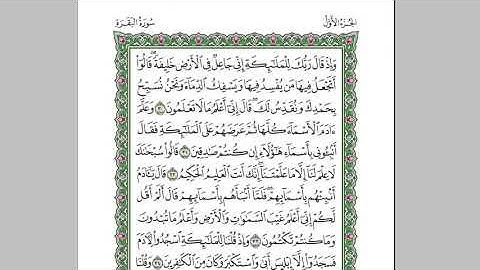 الجزء الأول
سورة البقرة
وَإِذْ قَالَ رَبُّكَ لِلْمَلَٰٓئِكَةِ إِنِّى جَاعِلٌ فِى ٱلْأَرْضِ خَلِيفَةً ۖ قَالُوٓا۟
أَتَجْعَلُ فِيهَا مَن يُفْسِدُ فِيهَا وَيَسْفِكُ ٱلدِّمَآءَ وَنَحْنُ نُسَبِّحُ
بِحَمْدِكَ وَنُقَدِّسُ لَكَ ۖ قَالَ إِنِّىٓ أَعْلَمُ مَا لَا تَعْلَمُونَ ٣٠ وَعَلَّمَ
ءَادَمَ ٱلْأَسْمَآءَ كُلَّهَا ثُمَّ عَرَضَهُمْ عَلَى ٱلْمَلَٰٓئِكَةِ فَقَالَ
أَنۢبِـُٔونِى بِأَسْمَآءِ هَٰٓؤُلَآءِ إِن كُنتُمْ صَٰدِقِينَ ٣١ قَالُوا۟ سُبْحَٰنَكَ
لَا عِلْمَ لَنَآ إِلَّا مَا عَلَّمْتَنَآ ۖ إِنَّكَ أَنتَ ٱلْعَلِيمُ ٱلْحَكِيمُ ٣٢ قَالَ يَٰٓـَٔادَمُ
أَنۢبِئْهُم بِأَسْمَآئِهِمْ ۖ فَلَمَّآ أَنۢبَأَهُم بِأَسْمَآئِهِمْ قَالَ أَلَمْ أَقُل
لَّكُمْ إِنِّىٓ أَعْلَمُ غَيْبَ ٱلسَّمَٰوَٰتِ وَٱلْأَرْضِ وَأَعْلَمُ مَا تُبْدُونَ
وَمَا كُنتُمْ تَكْتُمُونَ ٣٣ وَإِذْ قُلْنَا لِلْمَلَٰٓئِكَةِ ٱسْجُدُوا۟ لِـَٔادَمَ
فَسَجَدُوٓا۟ إِلَّآ إِبْلِيسَ أَبَىٰ وَٱسْتَكْبَرَ وَكَانَ مِنَ ٱلْكَٰفِرِينَ ٣٤ وَقُلْنَا